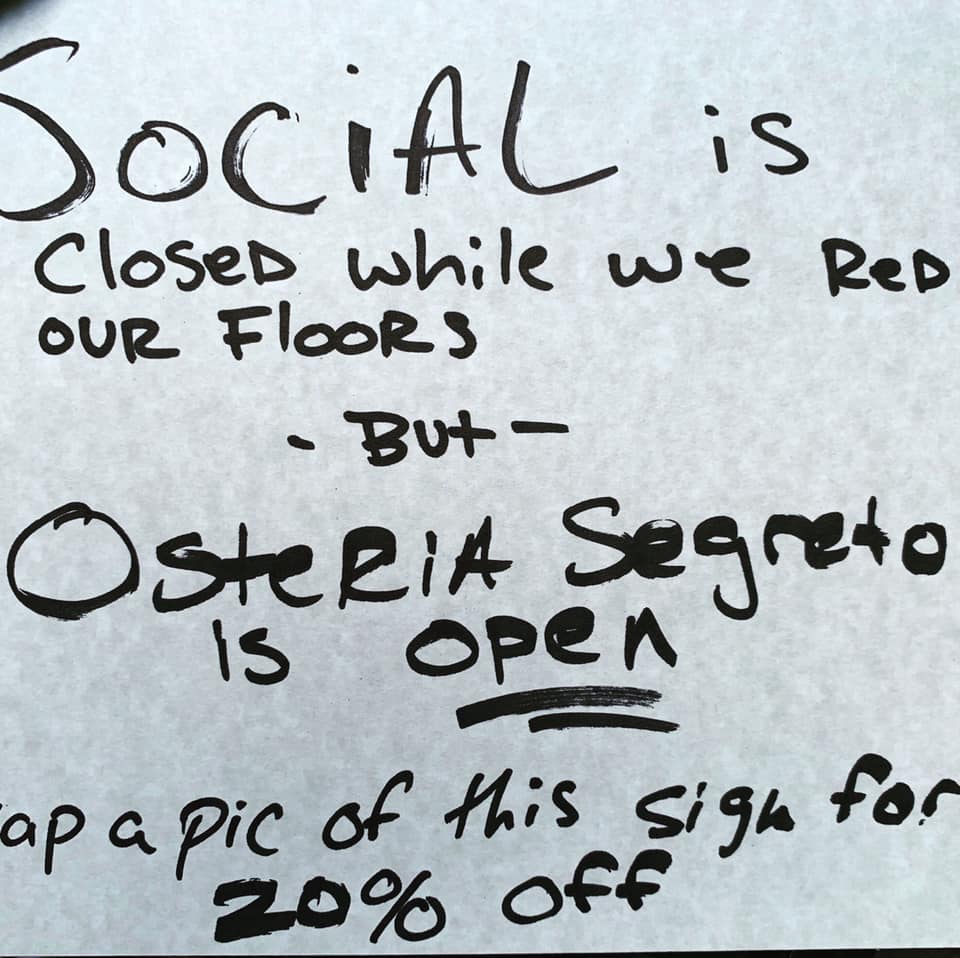 SOCiAL is
ClOSeD while we ReD
OUR FlOORS
- But -
OsteRiA Segreto
is open
ap a pic of this sign for
20% off